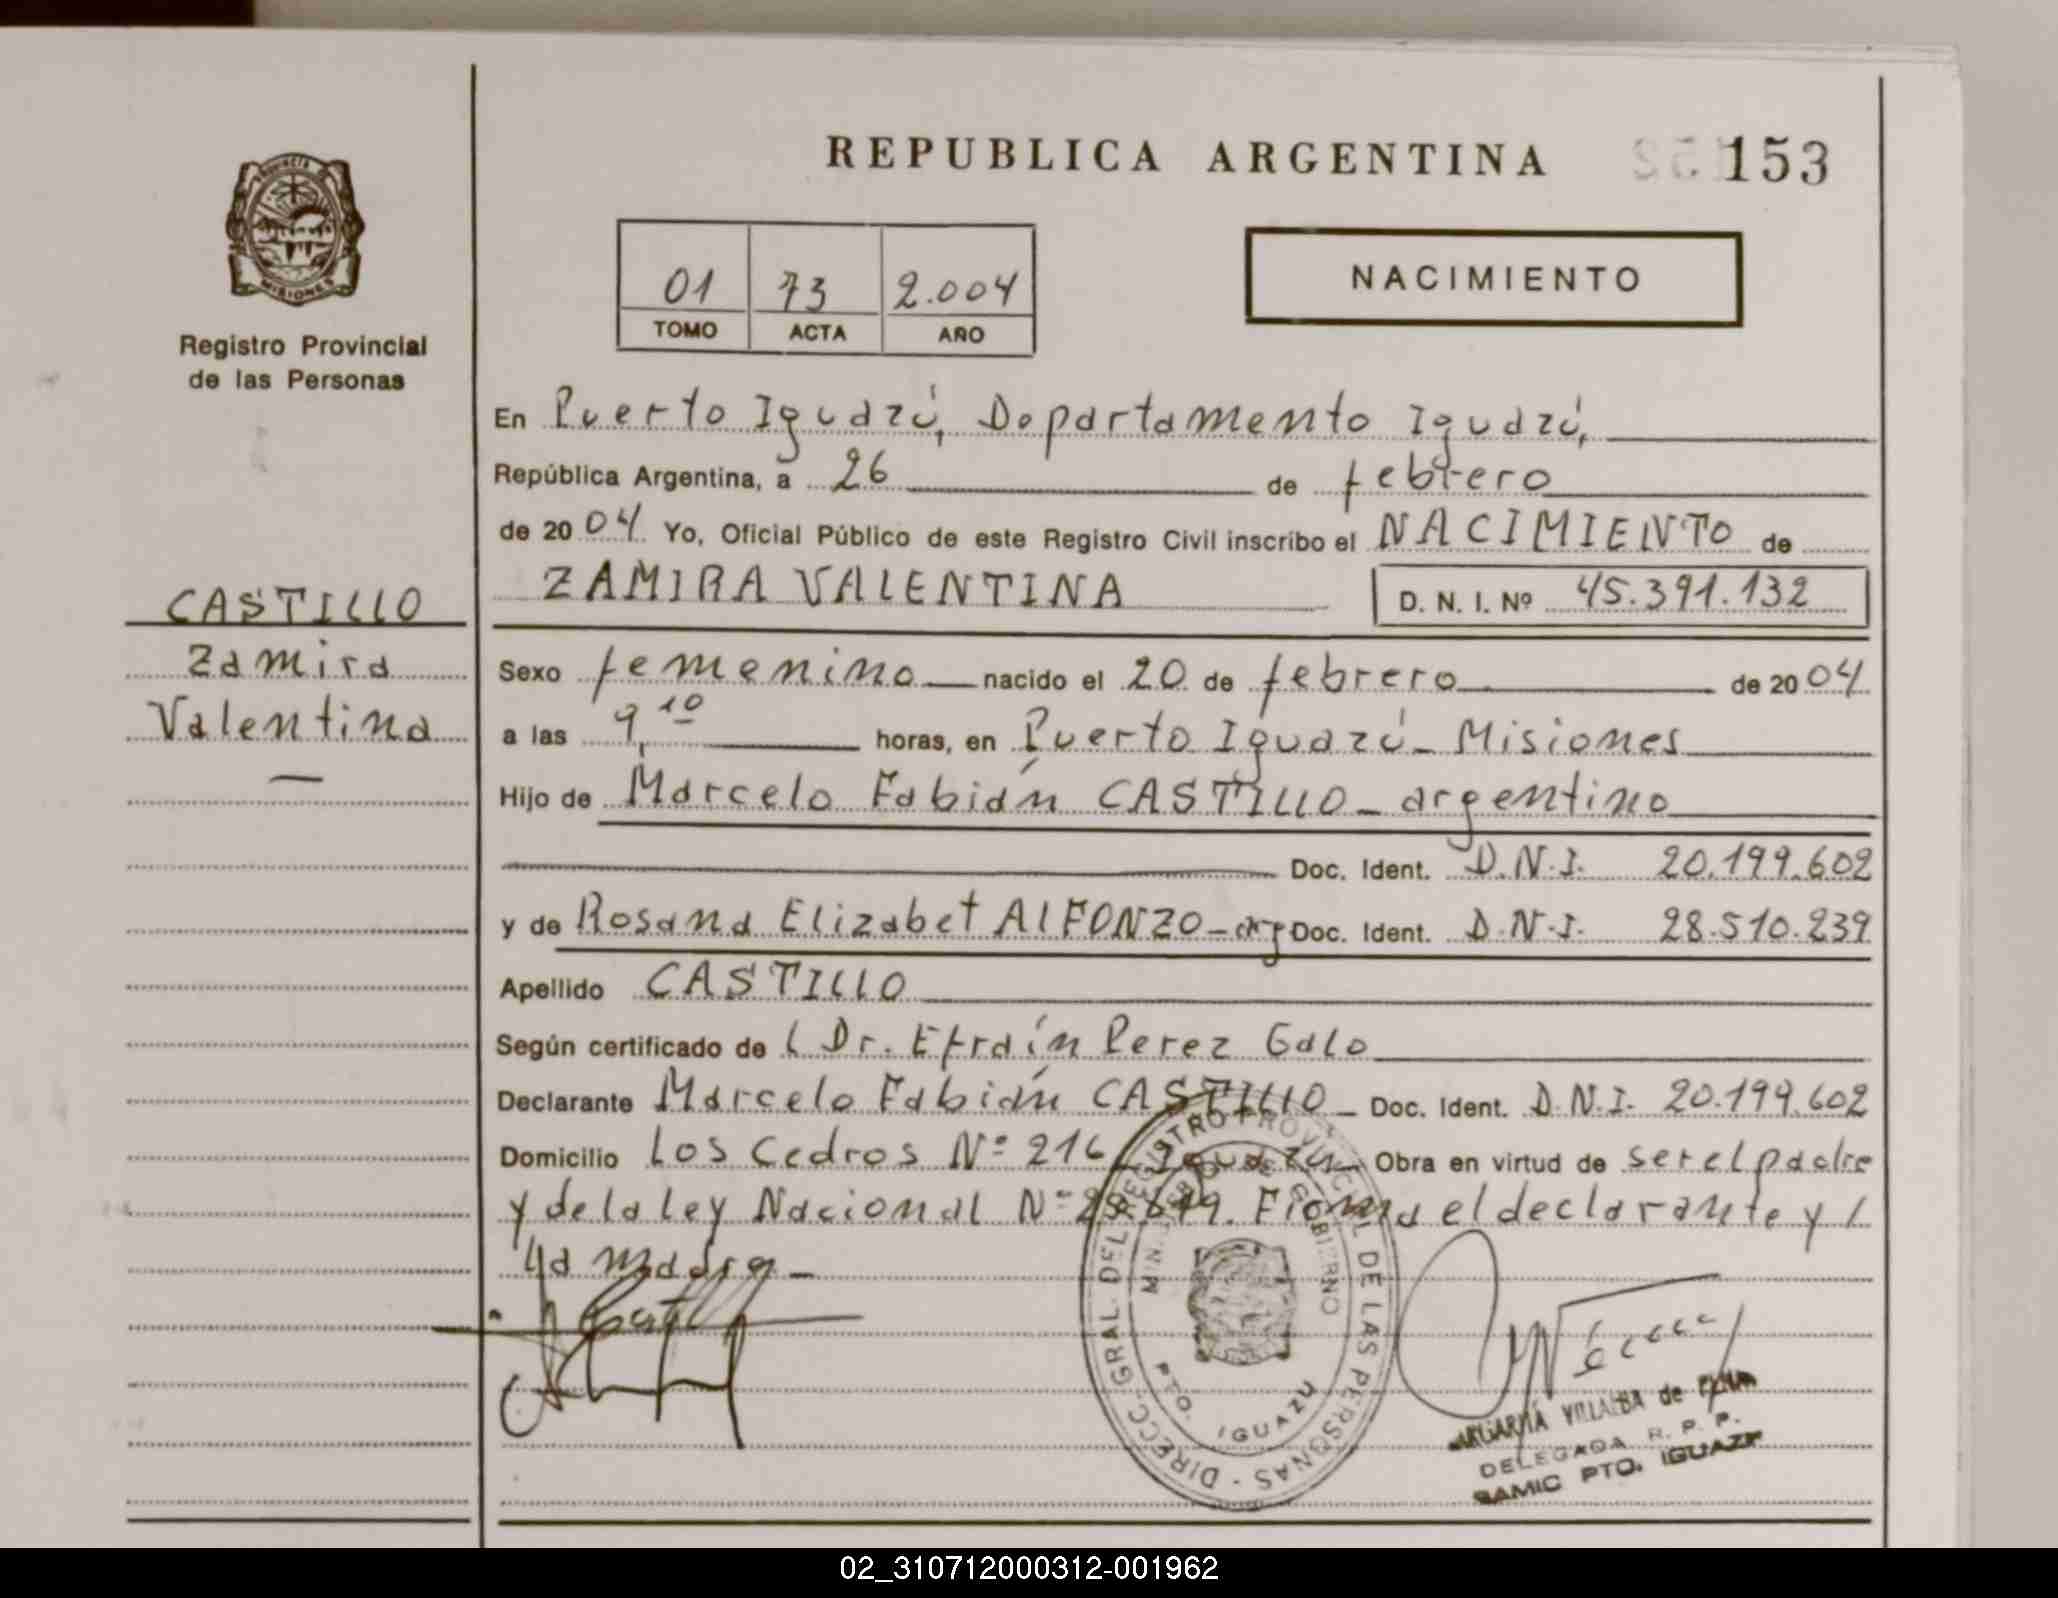 REPUBLICA ARGENTINA
153
PROVINCIA DE
MISIONES
Registro Provincial
de las Personas
01 73 2.004
TOMO ACTA AÑO
NACIMIENTO
En Puerto Iguazú, Departamento Iguazú,
República Argentina, a 26 de febrero
de 2004 Yo, Oficial Público de este Registro Civil inscribo el NACIMIENTO de
ZAMIRA VALENTINA D. N. I. Nº 45.391.132
CASTILLO
Zamira
Valentina
Sexo femenino nacido el 20 de febrero de 2004
a las 9,10 horas, en Puerto Iguazú - Misiones
Hijo de Marcelo Fabián CASTILLO - argentino
Doc. Ident. D.N.I. 20.199.602
y de Rosana Elizabet ALFONZO - arg Doc. Ident. D.N.I. 28.510.239
Apellido CASTILLO
Según certificado de l Dr. Efraín Perez Galo
Declarante Marcelo Fabián CASTILLO - Doc. Ident. D.N.I. 20.199.602
Domicilio Los Cedros Nº 216 - Iguazú - Obra en virtud de ser el padre
y de la Ley Nacional Nº Firma el declarante y /
//la madre -
DIRECC. GRAL. DEL REGISTRO PROVINCIAL DE LAS PERSONAS -
MIN. DE GOBIERNO
PTO. IGUAZU
VILLALBA de
DELEGADA R. P. P.
SAMIC PTO. IGUAZU
02_310712000312-001962